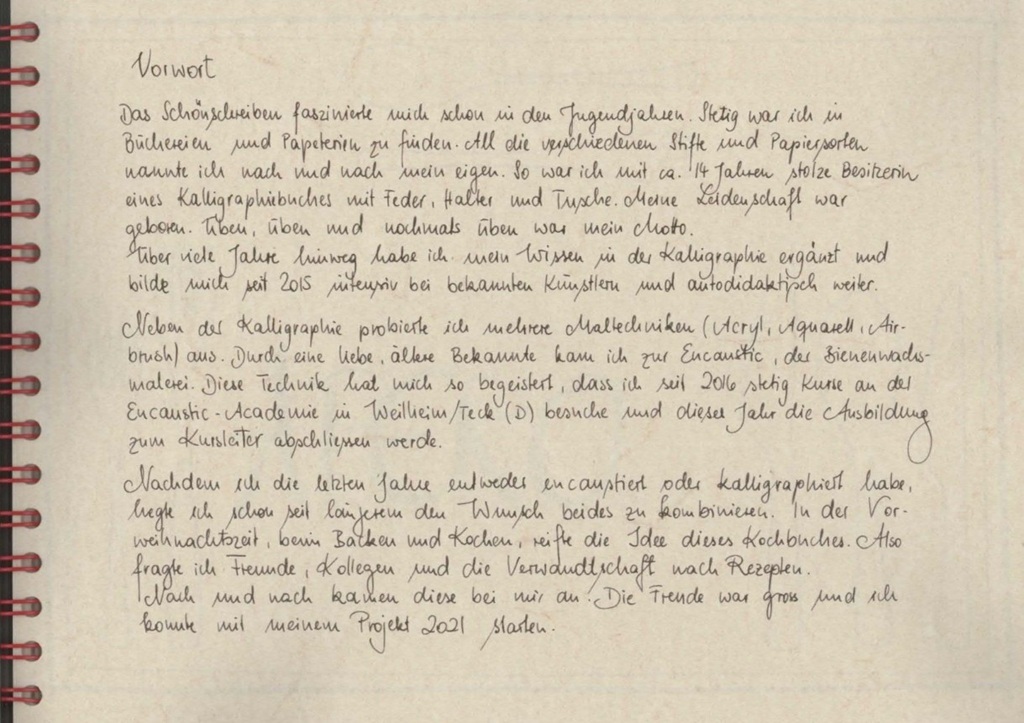 Vorwort
Das Schönschreiben faszinierte mich schon in den Jugendjahren. Stetig war ich in
Büchereien und Papeterien zu finden. All die verschiedenen Stifte und Papiersorten
nannte ich nach und nach mein eigen. So war ich mit ca. 14 Jahren stolze Besitzerin
eines Kalligraphiebuches mit Feder, Halter und Tusche. Meine Leidenschaft war
geboren. Üben, üben und nochmals üben war mein Motto.
Über viele Jahre hinweg habe ich mein Wissen in der Kalligraphie ergänzt und
bilde mich seit 2015 intensiv bei bekannten Künstlern und autodidaktisch weiter.
Neben der Kalligraphie probierte ich mehrere Maltechniken (Acryl, Aquarell, Air-
brush) aus. Durch eine liebe, ältere Bekannte kam ich zur Encaustic, der Bienenwachs-
malerei. Diese Technik hat mich so begeistert, dass ich seit 2016 stetig Kurse an der
Encaustic-Academie in Weilheim/Teck (D) besuche und dieses Jahr die Ausbildung
zum Kursleiter abschliessen werde.
Nachdem ich die letzten Jahre entweder encaustiert oder kalligraphiert habe,
hegte ich schon seit längerem den Wunsch beides zu kombinieren. In der Vor-
weihnachtszeit, beim Backen und Kochen, reifte die Idee dieses Kochbuches. Also
fragte ich Freunde, Kollegen und die Verwandtschaft nach Rezepten.
Nach und nach kamen diese bei mir an. Die Freude war gross und ich
konnte mit meinem Projekt 2021 starten.